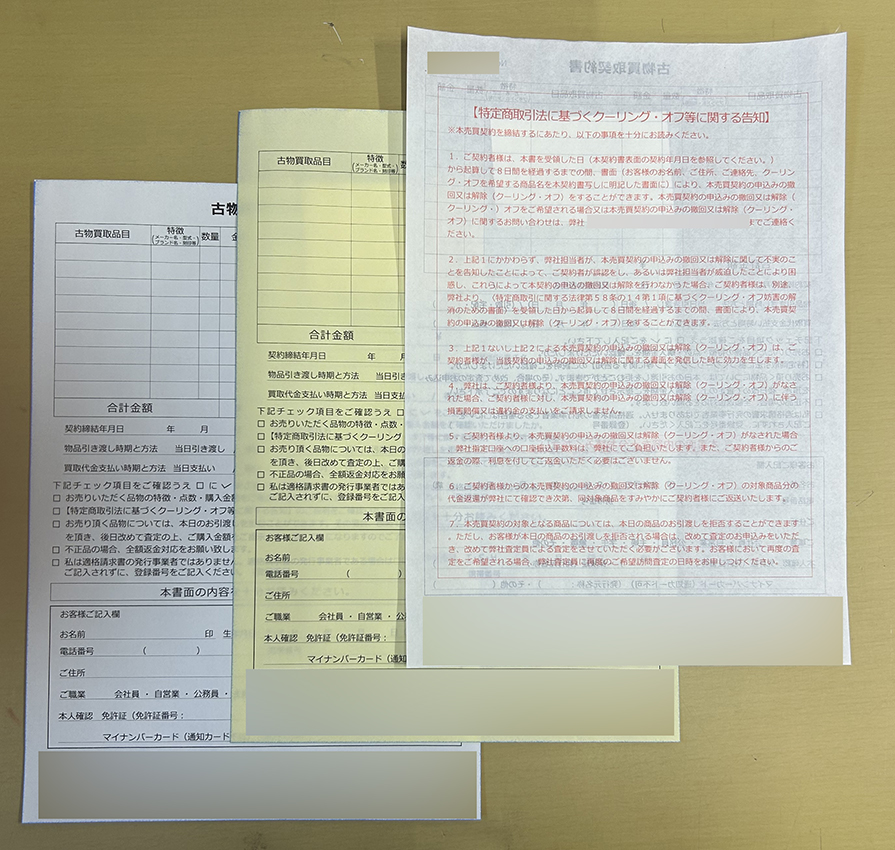 古物
古物買取品目
特徴
(メーカー名・型式・
ブランド名・刻印等)
数量
合計金額
契約締結年月日 年 月
物品引き渡し時期と方法 当日引き渡し
買取代金支払い時期と方法 当日支払い
下記チェック項目をご確認うえ □ に
□ お売りいただく品物の特徴・点数・購入金額
□ 【特定商取引法に基づくクーリング・オフ等
□ お売り頂く品物については、本日のお引渡し
を頂き、後日改めて査定の上、ご購入金額を
□ 不正品の場合、全額返金対応をお願い致し
□ 私は適格請求書の発行事業者ではありません。
ご記入されずに、登録番号をご記入ください
本書面の内容を
お客様ご記入欄
お名前 印 生
電話番号 ( )
ご住所
ご職業 会社員 ・ 自営業 ・ 公務員 ・
本人確認 免許証(免許証番号:
マイナンバーカード(通知カード
古物買取品目
特徴
(メーカー名・型式・
ブランド名・刻印等)
合計金額
契約締結年月日 年 月
物品引き渡し時期と方法 当日引き
買取代金支払い時期と方法 当日支
下記チェック項目をご確認うえ □
□ お売りいただく品物の特徴・点数・
□ 【特定商取引法に基づくクーリング
□ お売り頂く品物については、本日の
を頂き、後日改めて査定の上、ご購
□ 不正品の場合、全額返金対応をお願
□ 私は適格請求書の発行事業者ではあ
ご記入されずに、登録番号をご記入
本書面の
お客様ご記入欄
お名前
電話番号 (
ご住所
ご職業 会社員 ・ 自営業 ・
本人確認 免許証(免許証番号:
マイナンバーカード(通知
【特定商取引法に基づくクーリング・オフ等に関する告知】
※本売買契約を締結するにあたり、以下の事項を十分にお読みください。
1.ご契約者様は、本書を受領した日(本契約書表面の契約年月日を参照してください。)
から起算して8日間を経過するまでの間、書面(お客様のお名前、ご住所、ご連絡先、クーリン
グ・オフを希望する商品名を本契約書写しに明記した書面に)により、本売買契約の申込みの撤
回又は解除(クーリング・オフ)をすることができます。本売買契約の申込みの撤回又は解除(
クーリング・)オフをご希望される場合又は本売買契約の申込みの撤回又は解除(クーリング・
オフ)に関するお問い合わせは、弊社 までご連絡く
ださい。
2.上記1にかかわらず、弊社担当者が、本売買契約の申込みの撤回又は解除に関して不実のこ
とを告知したことによって、ご契約者が誤認をし、あるいは弊社担当者が威迫したことにより困
惑し、これらによって本契約の申込の撤回又は解除を行わなかった場合、ご契約者様は、別途、
弊社より、〈特定商取引に関する法律第58条の14第1項に基づくクーリング・オフ妨害の解
消のための書面〉を受領した日から起算して8日間を経過するまでの間、書面により、本売買契
約の申込みの撤回又は解除(クーリング・オフ)をすることができます。
3.上記1ないし上記2による本売買契約の申込みの撤回又は解除(クーリング・オフ)は、ご
契約者様が、当該契約の申込みの撤回又は解除に関する書面を発信した時に効力を生じます。
4.弊社は、ご契約者様より、本売買契約の申込みの撤回又は解除(クーリング・オフ)がなさ
れた場合、ご契約者様に対し、本売買契約の申込みの撤回又は解除(クーリング・オフ)に伴う
損害賠償又は違約金の支払いをご請求しません。
5.ご契約者様より、本売買契約の申込みの撤回又は解除(クーリング・オフ)がなされた場合
、弊社指定口座への口座振込手数料は、弊社にてご負担いたします。また、ご契約者様からのご
返金の際、利息を付してご返金いただく必要はございません。
6.ご契約者様からの本売買契約の申込みの撤回又は解除(クーリング・オフ)の対象商品分の
代金返還が弊社にて確認でき次第、同対象商品をすみやかにご契約者様にご返送いたします。
7.本売買契約の対象となる商品については、本日の商品のお引渡しを拒否することができます
。ただし、お客様が本日の商品のお引渡しを拒否される場合は、改めて査定のお申込みをいただ
き、改めて弊社査定員による査定をさせていただく必要がございます。お客様において再度の査
定をご希望される場合、弊社査定員に再度のご希望訪問査定の日時をお申しつけください。